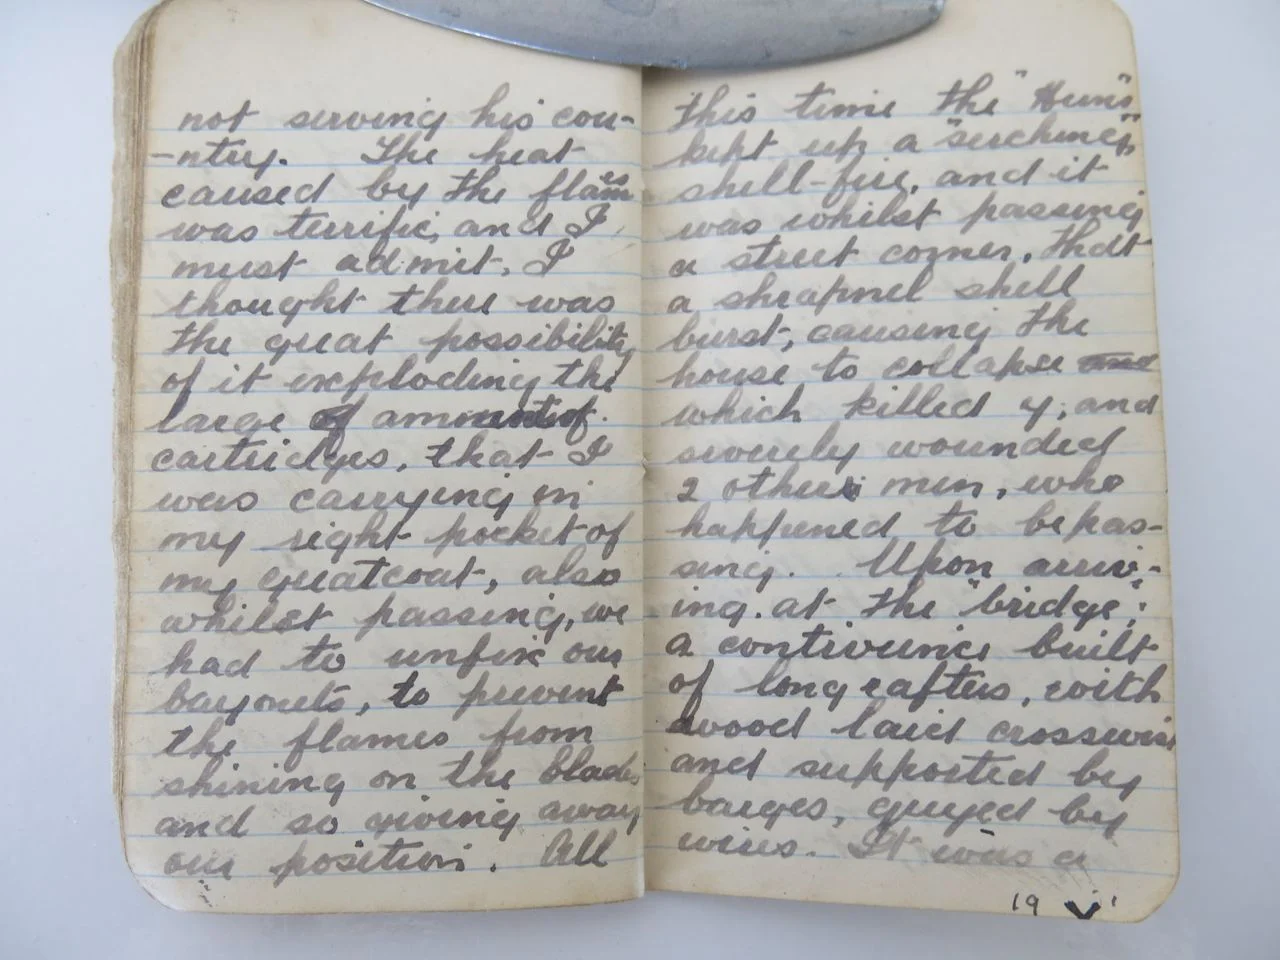 not serving his cou-
-ntry. The heat
caused by the flames
was terrific, and I
must admit, I
thought there was
the great possibility
of it exploding the
large amount of
cartridges, that I
was carrying in
my right pocket of
my greatcoat, also
whilst passing, we
had to unfix our
bayonets, to prevent
the flames from
shining on the blades
and so giving away
our position. All
this time the "Huns"
kept up a "serching"
shell-fire, and it
was whilst passing
a street corner, that
a shrapnel shell
burst, causing the
house to collapse and
which killed 4, and
severely wounded
2 others men, who
happened to be pas-
sing. Upon arriv-
ing at the "bridge"
a contivence built
of long rafters, with
wood laid crosswise
and supported by
barges, guyed by
wires. It was a
19